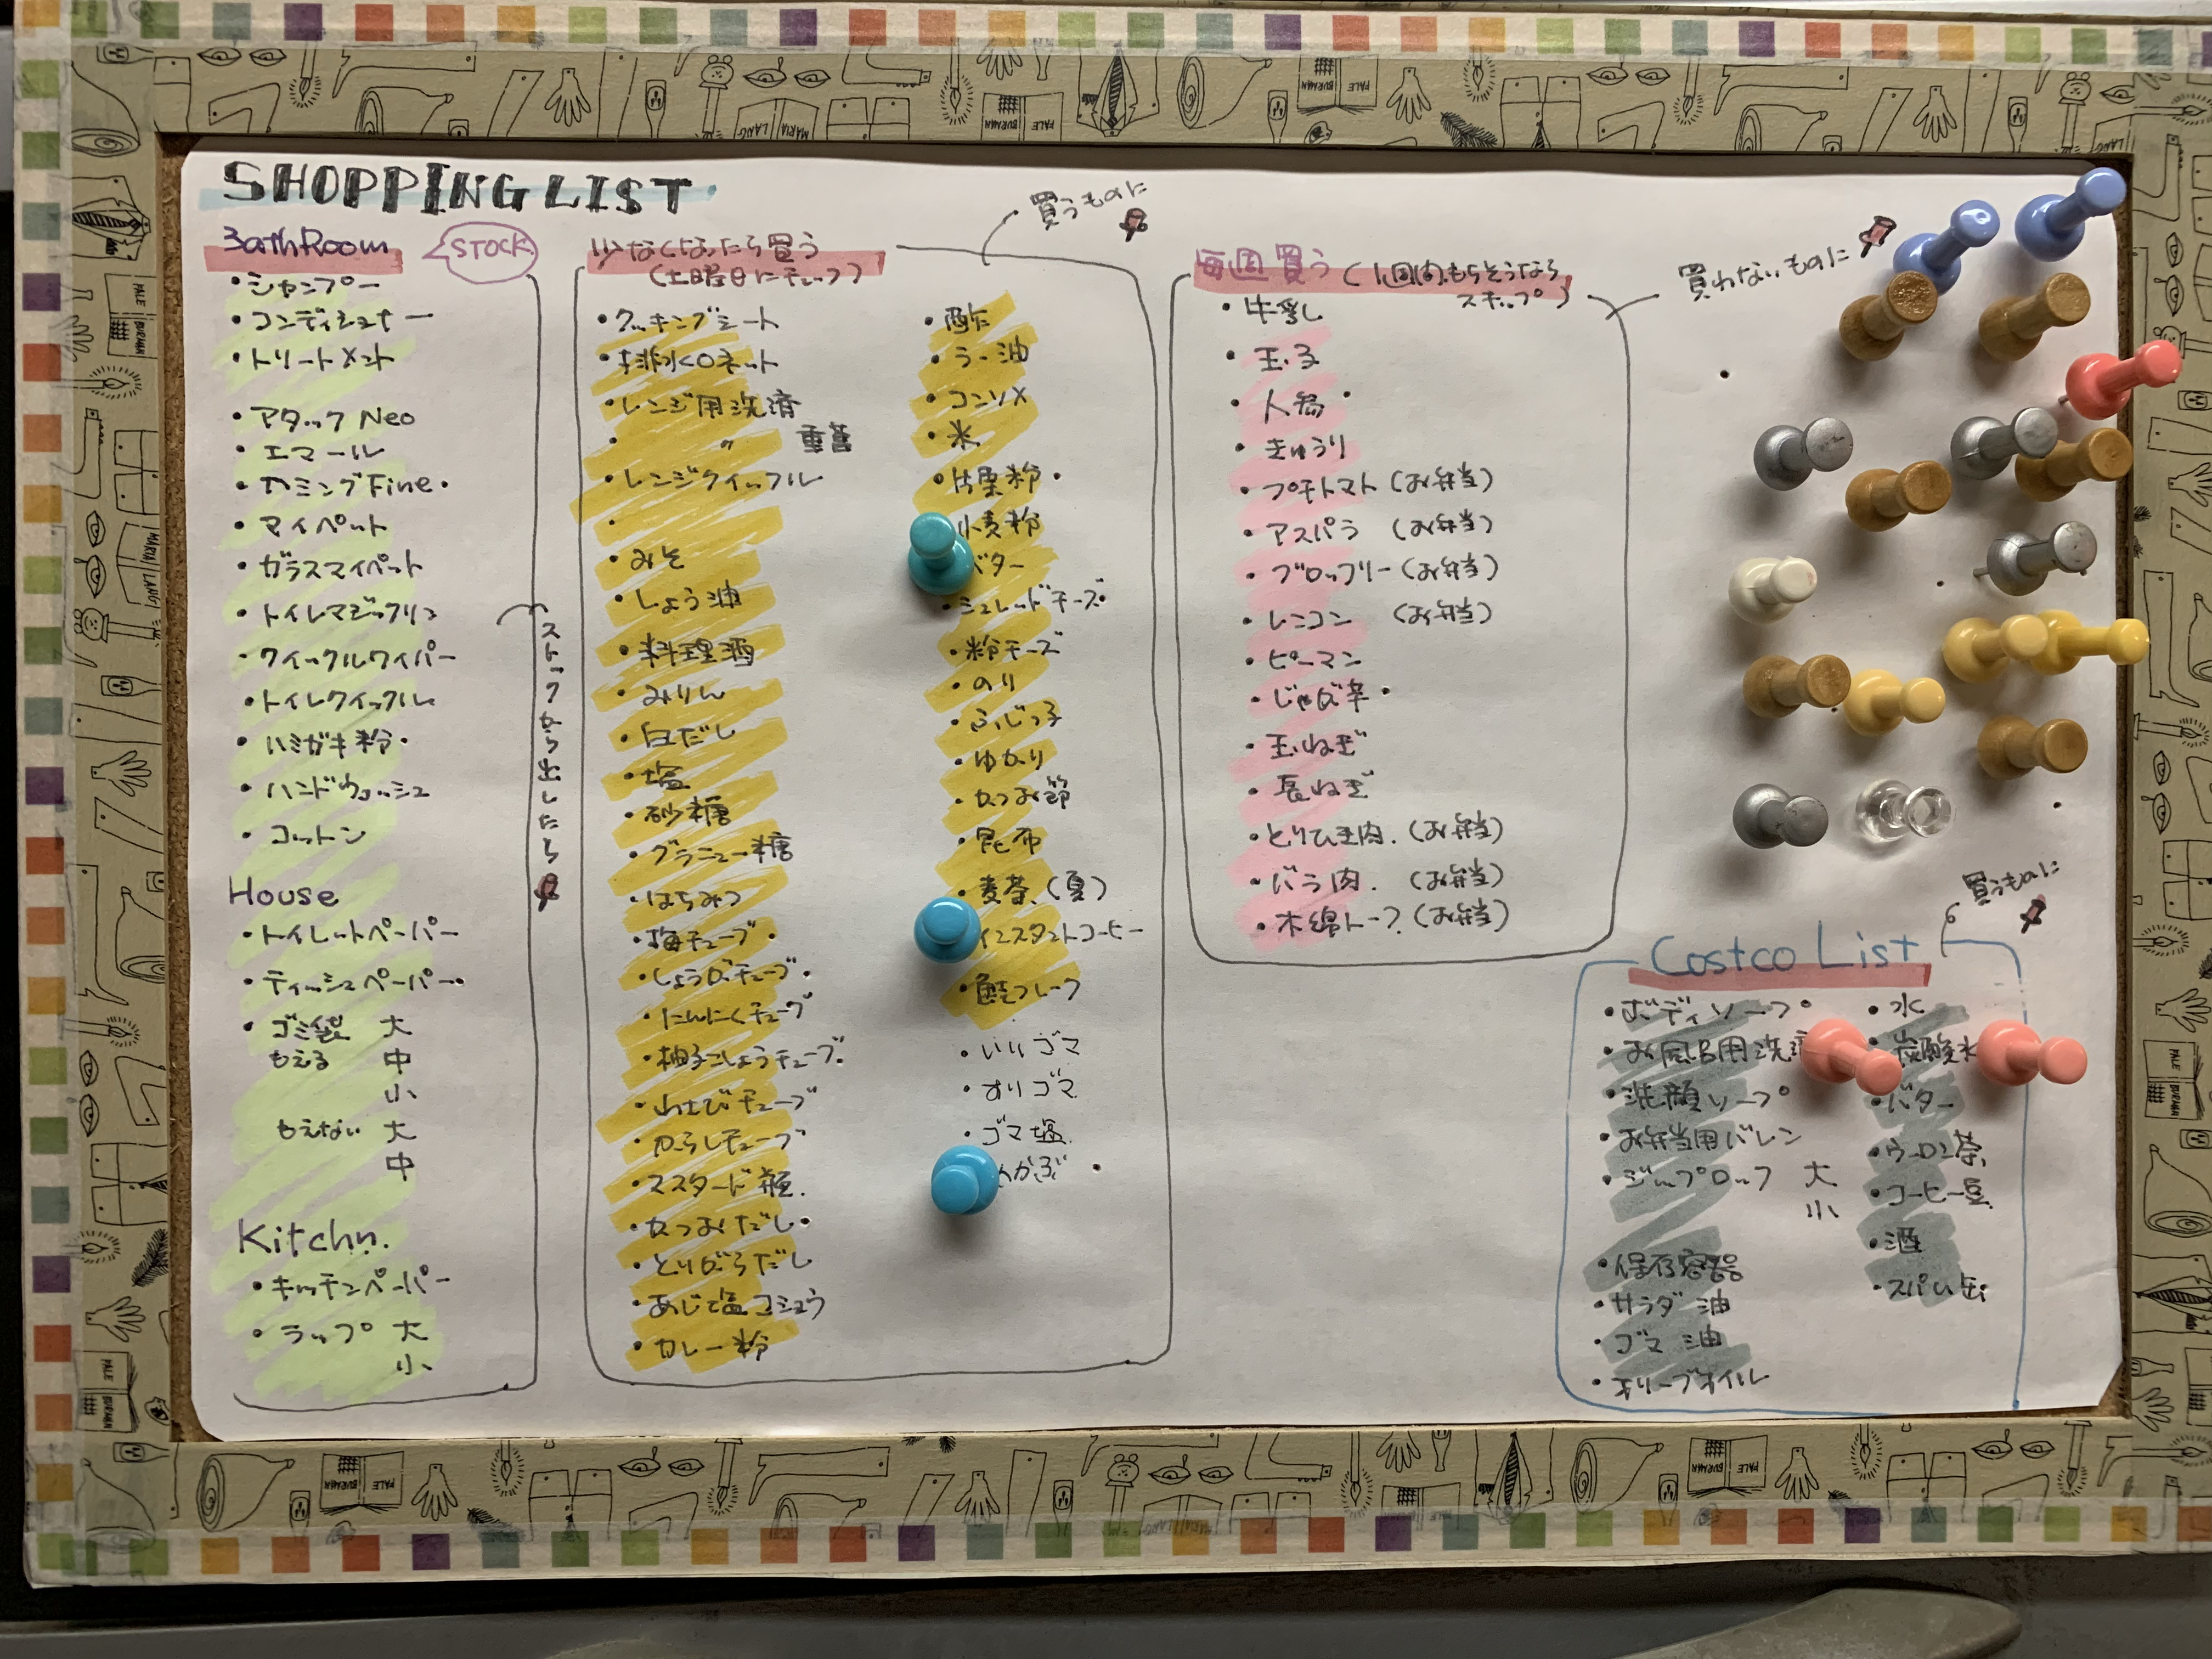 SHOPPING LIST
BathRoom
STOCK
・シャンプー
・コンディショナー
・トリートメント
・アタック Neo
・エマール
・ハミングFine・
・マイペット
・ガラスマイペット
・トイレマジックリン
・クイックルワイパー
・トイレクイックル
・ハミガキ粉・
・ハンドウォッシュ
・コットン
House
・トイレットペーパー
・ティッシュペーパー・
・ゴミ袋 大
もえる 中
小
もえない 大
中
Kitchn.
・キッチンペーパー
・ラップ 大
小
ストックから出したら
少なくなったら買う
(土曜日にチェック)
買うものに
・クッキングシート
・排水口ネット
・レンジ用洗済
・〃 重曹
・レンジクイックル
・
・みそ
・しょう油
・料理酒
・みりん
・白だし
・塩
・砂糖
・グラニュー糖
・はちみつ
・梅チューブ・
・しょうがチューブ・
・にんにくチューブ
・柚子こしょうチューブ・
・わさびチューブ
・からしチューブ
・マスタード瓶.
・かつおだし・
・とりがらだし
・あじ塩コショウ
・カレー粉
・酢
・ラー油
・コンソメ
・米
・片栗粉・
小麦粉
バター
・シュレッドチーズ・
・粉チーズ
・のり
・ふじっ子
・ゆかり
・かつお節
・昆布
・麦茶(夏)
インスタントコーヒー
・鮭フレーク
・いりゴマ
・すりゴマ
・ゴマ塩
めかぶ ・
毎週買う(1週間もちそうなら
スキップ)
買わないものに
・牛乳
・玉子
・人参・
・きゅうり
・プチトマト(お弁当)
・アスパラ (お弁当)
・ブロッコリー(お弁当)
・レンコン (お弁当)
・ピーマン
・じゃが芋・
・玉ねぎ
・長ねぎ
・とりひき肉.(お弁当)
・バラ肉. (お弁当)
・木綿トーフ(お弁当)
買うものに
Costco List
・ボディソープ
・お風呂用洗
・洗顔ソープ
・お弁当用バレン
・ジップロック 大
小
・保存容器
・サラダ油
・ゴマ油
・オリーブオイル
・水
炭酸水
・バター
・ウーロン茶
・コーヒー豆
・酒
・スパム缶